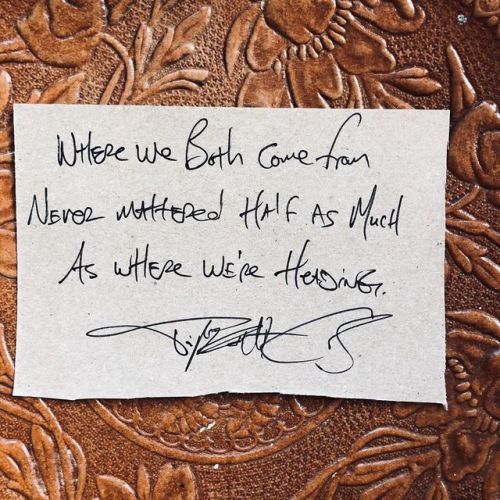 WHERE WE BOTH COME from
NEVER MATTERED HALF AS MUCH
AS WHERE WE'RE HEADING.